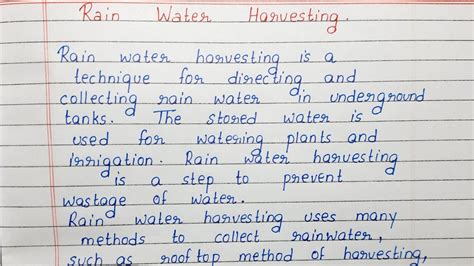 Rain Water Harvesting.
Rain water harvesting is a
technique for directing and
collecting rain water in underground
tanks. The stored water is
used for watering plants and
irrigation. Rain water harvesting
is a step to prevent
wastage of water.
Rain water harvesting uses many
methods to collect rainwater,
such as rooftop method of harvesting,